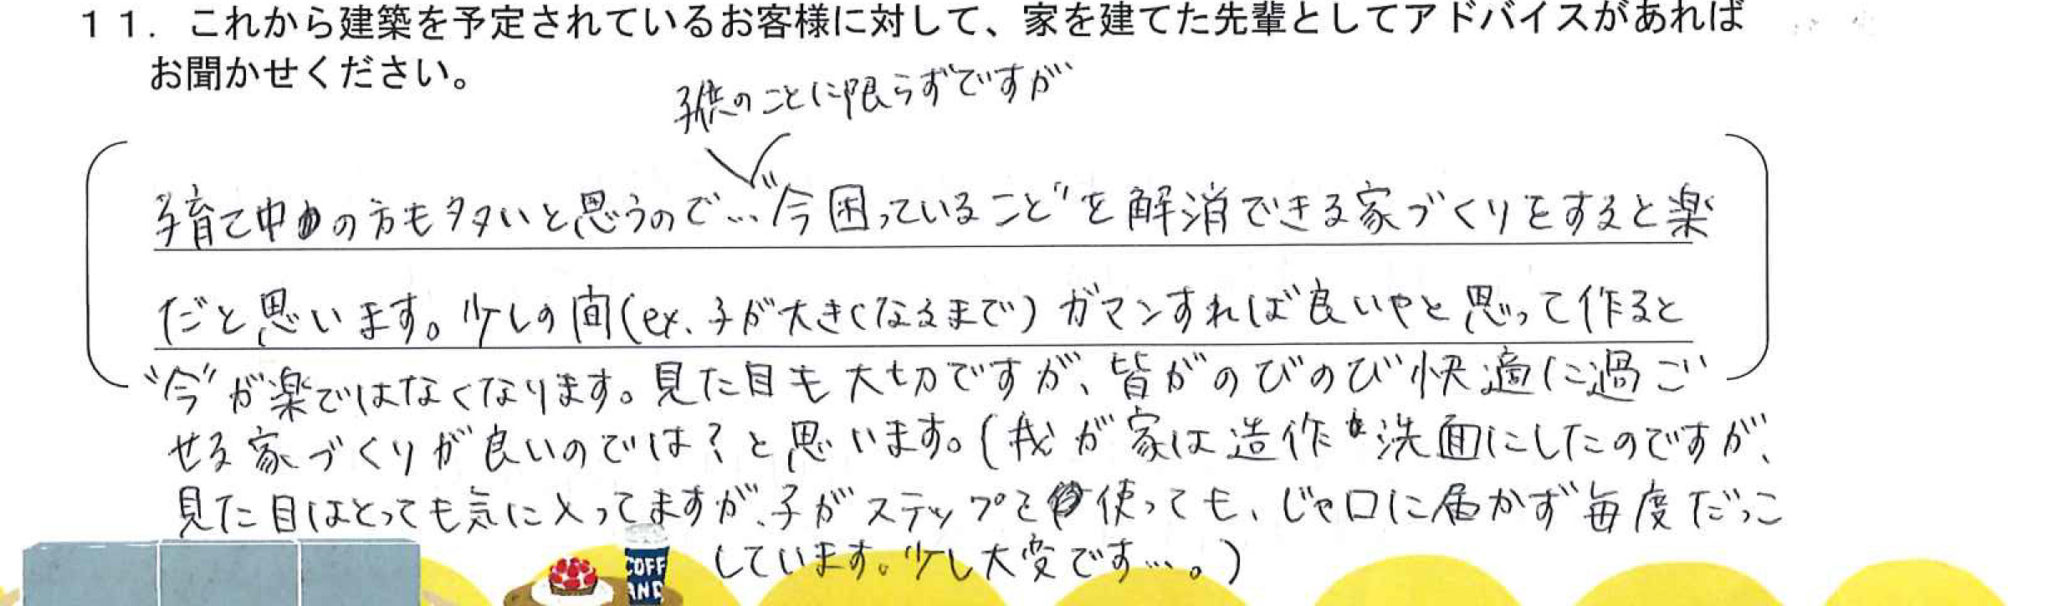 １１．これから建築を予定されているお客様に対して、家を建てた先輩としてアドバイスがあれば
お聞かせください。
子供のことに限らずですが
子育て中の方も多いと思うので…"今困っていること"を解消できる家づくりをすると楽
だと思います。少しの間(ex.子が大きくなるまで)ガマンすれば良いやと思って作ると
"今"が楽ではなくなります。見た目も大切ですが、皆がのびのび快適に過ご
せる家づくりが良いのでは？と思います。(我が家は造作洗面にしたのですが、
見た目はとっても気に入ってますが、子がステップを使っても、じゃ口に届かず毎度だっこ
しています。少し大変です…。)
COFF
AND